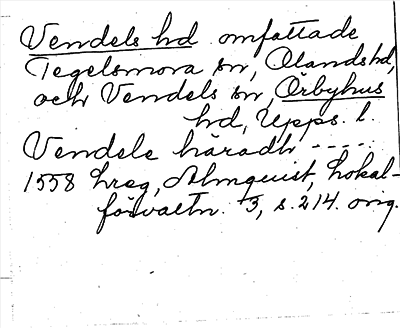 Vendels hd omfattade
Tegelsmora sn, Olands hd,
och Vendels sn, Örbyhus
hd, Upps. l.
Vendele häradh -----
1558 hreg, Almquist, Lokal-
förvaltn. 3, s. 214. orig.